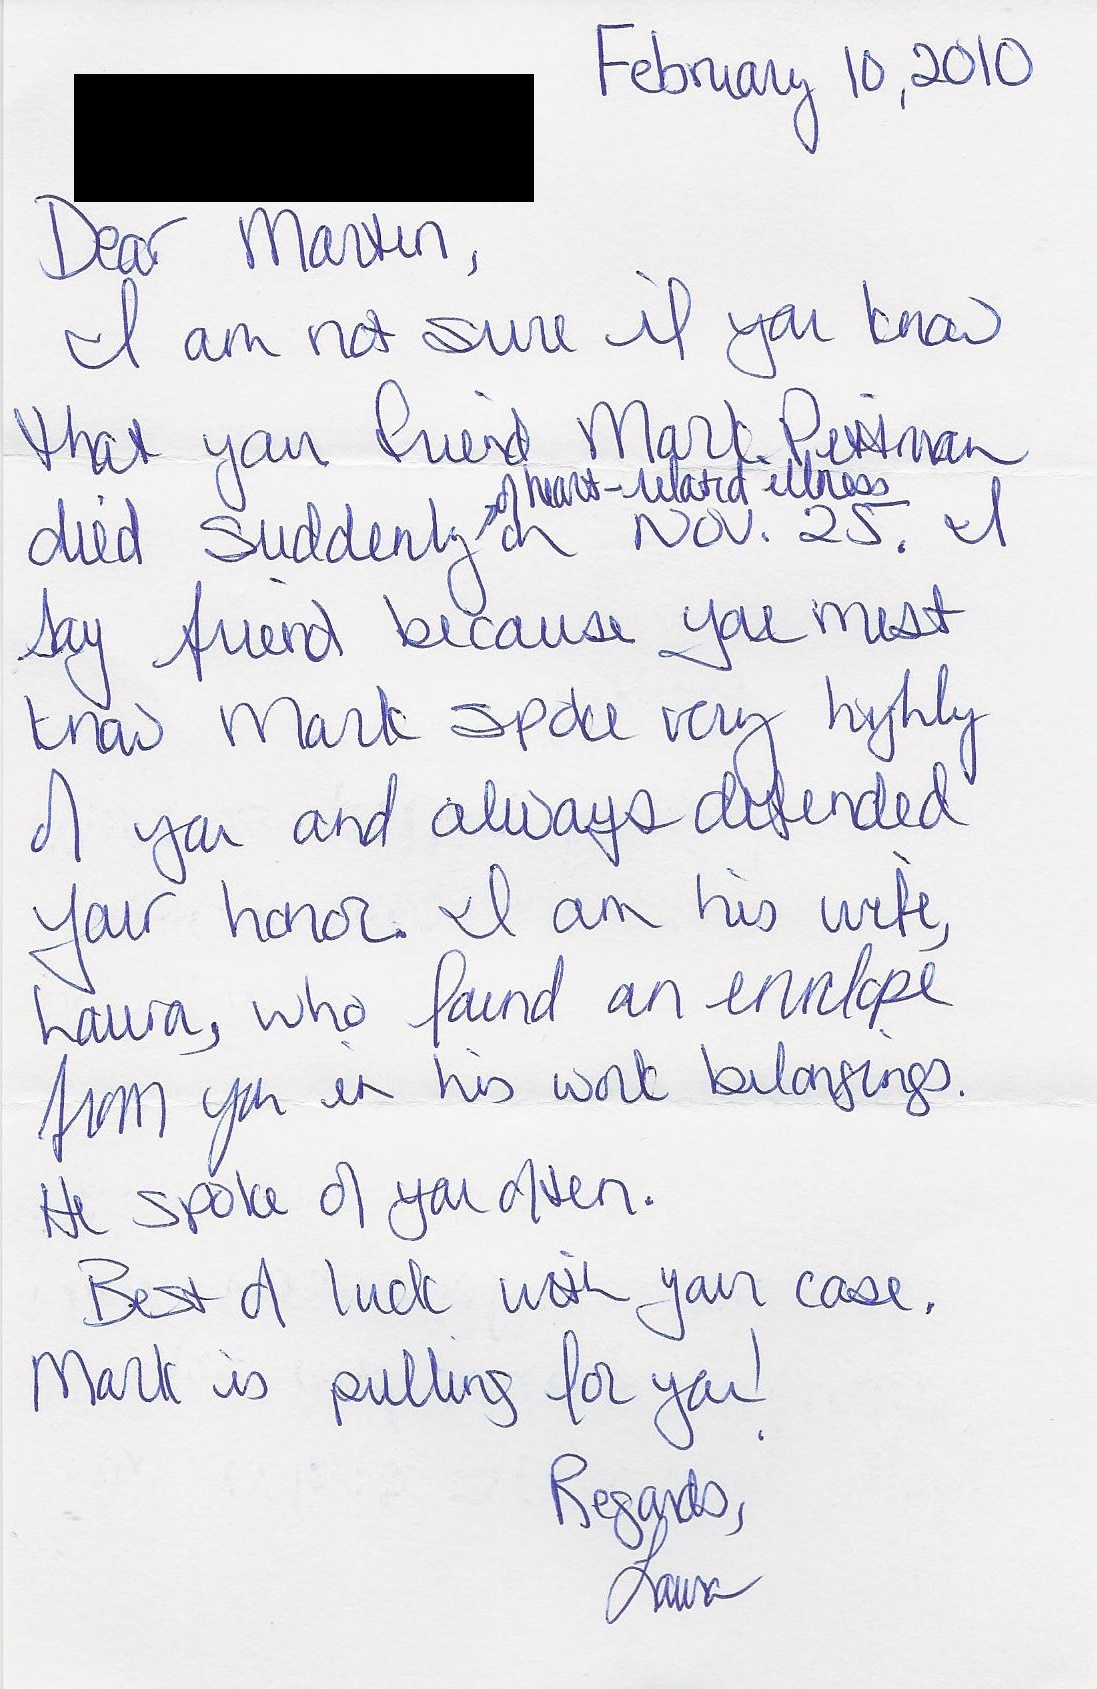 February 10, 2010
Dear Martin,
I am not sure if you know
that your friend Mark Pittman
of heart-related illness
died suddenly on Nov. 25. I
say friend because you must
know Mark spoke very highly
of you and always defended
your honor. I am his wife,
Laura, who found an envelope
from you in his work belongings.
He spoke of you often.
Best of luck with your case.
Mark is pulling for you!
Regards,
Laura